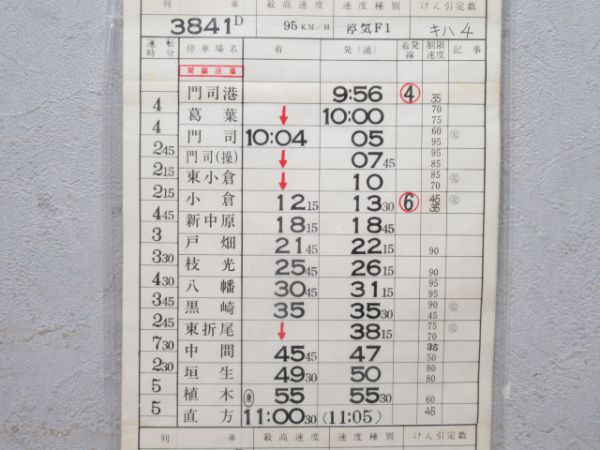 列 車 最高速度 速度種別 けん引定数
3841D 95KM/H 停気F1 キハ4
運転時分 停車場名 着 発(通) 着発線 制限速度 記事
門司港 9:56 ④ 35
4
葛葉 ↓ 10:00 70 75
4
門司 10:04 05 60 95
2 45
門司(操) ↓ 07 45 95 85
2 15
東小倉 ↓ 10 85 70
2 15
小倉 12 15 13 30 ⑥ 45 35
4 45
新中原 18 15 18 45
3
戸畑 21 45 22 15 90
3 30
枝光 25 45 26 15 90
4 30
八幡 30 45 31 15 95 95
3 45
黒崎 35 35 30 90 45
2 45
東折尾 ↓ 38 15 75 70
7 30
中間 45 45 47 35 50
2 30
垣生 49 30 50 80 80
5
植木 55 55 30 60
5
直方 11:00 30 (11:05) 45
列 車 最高速度 速度種別 けん引定数